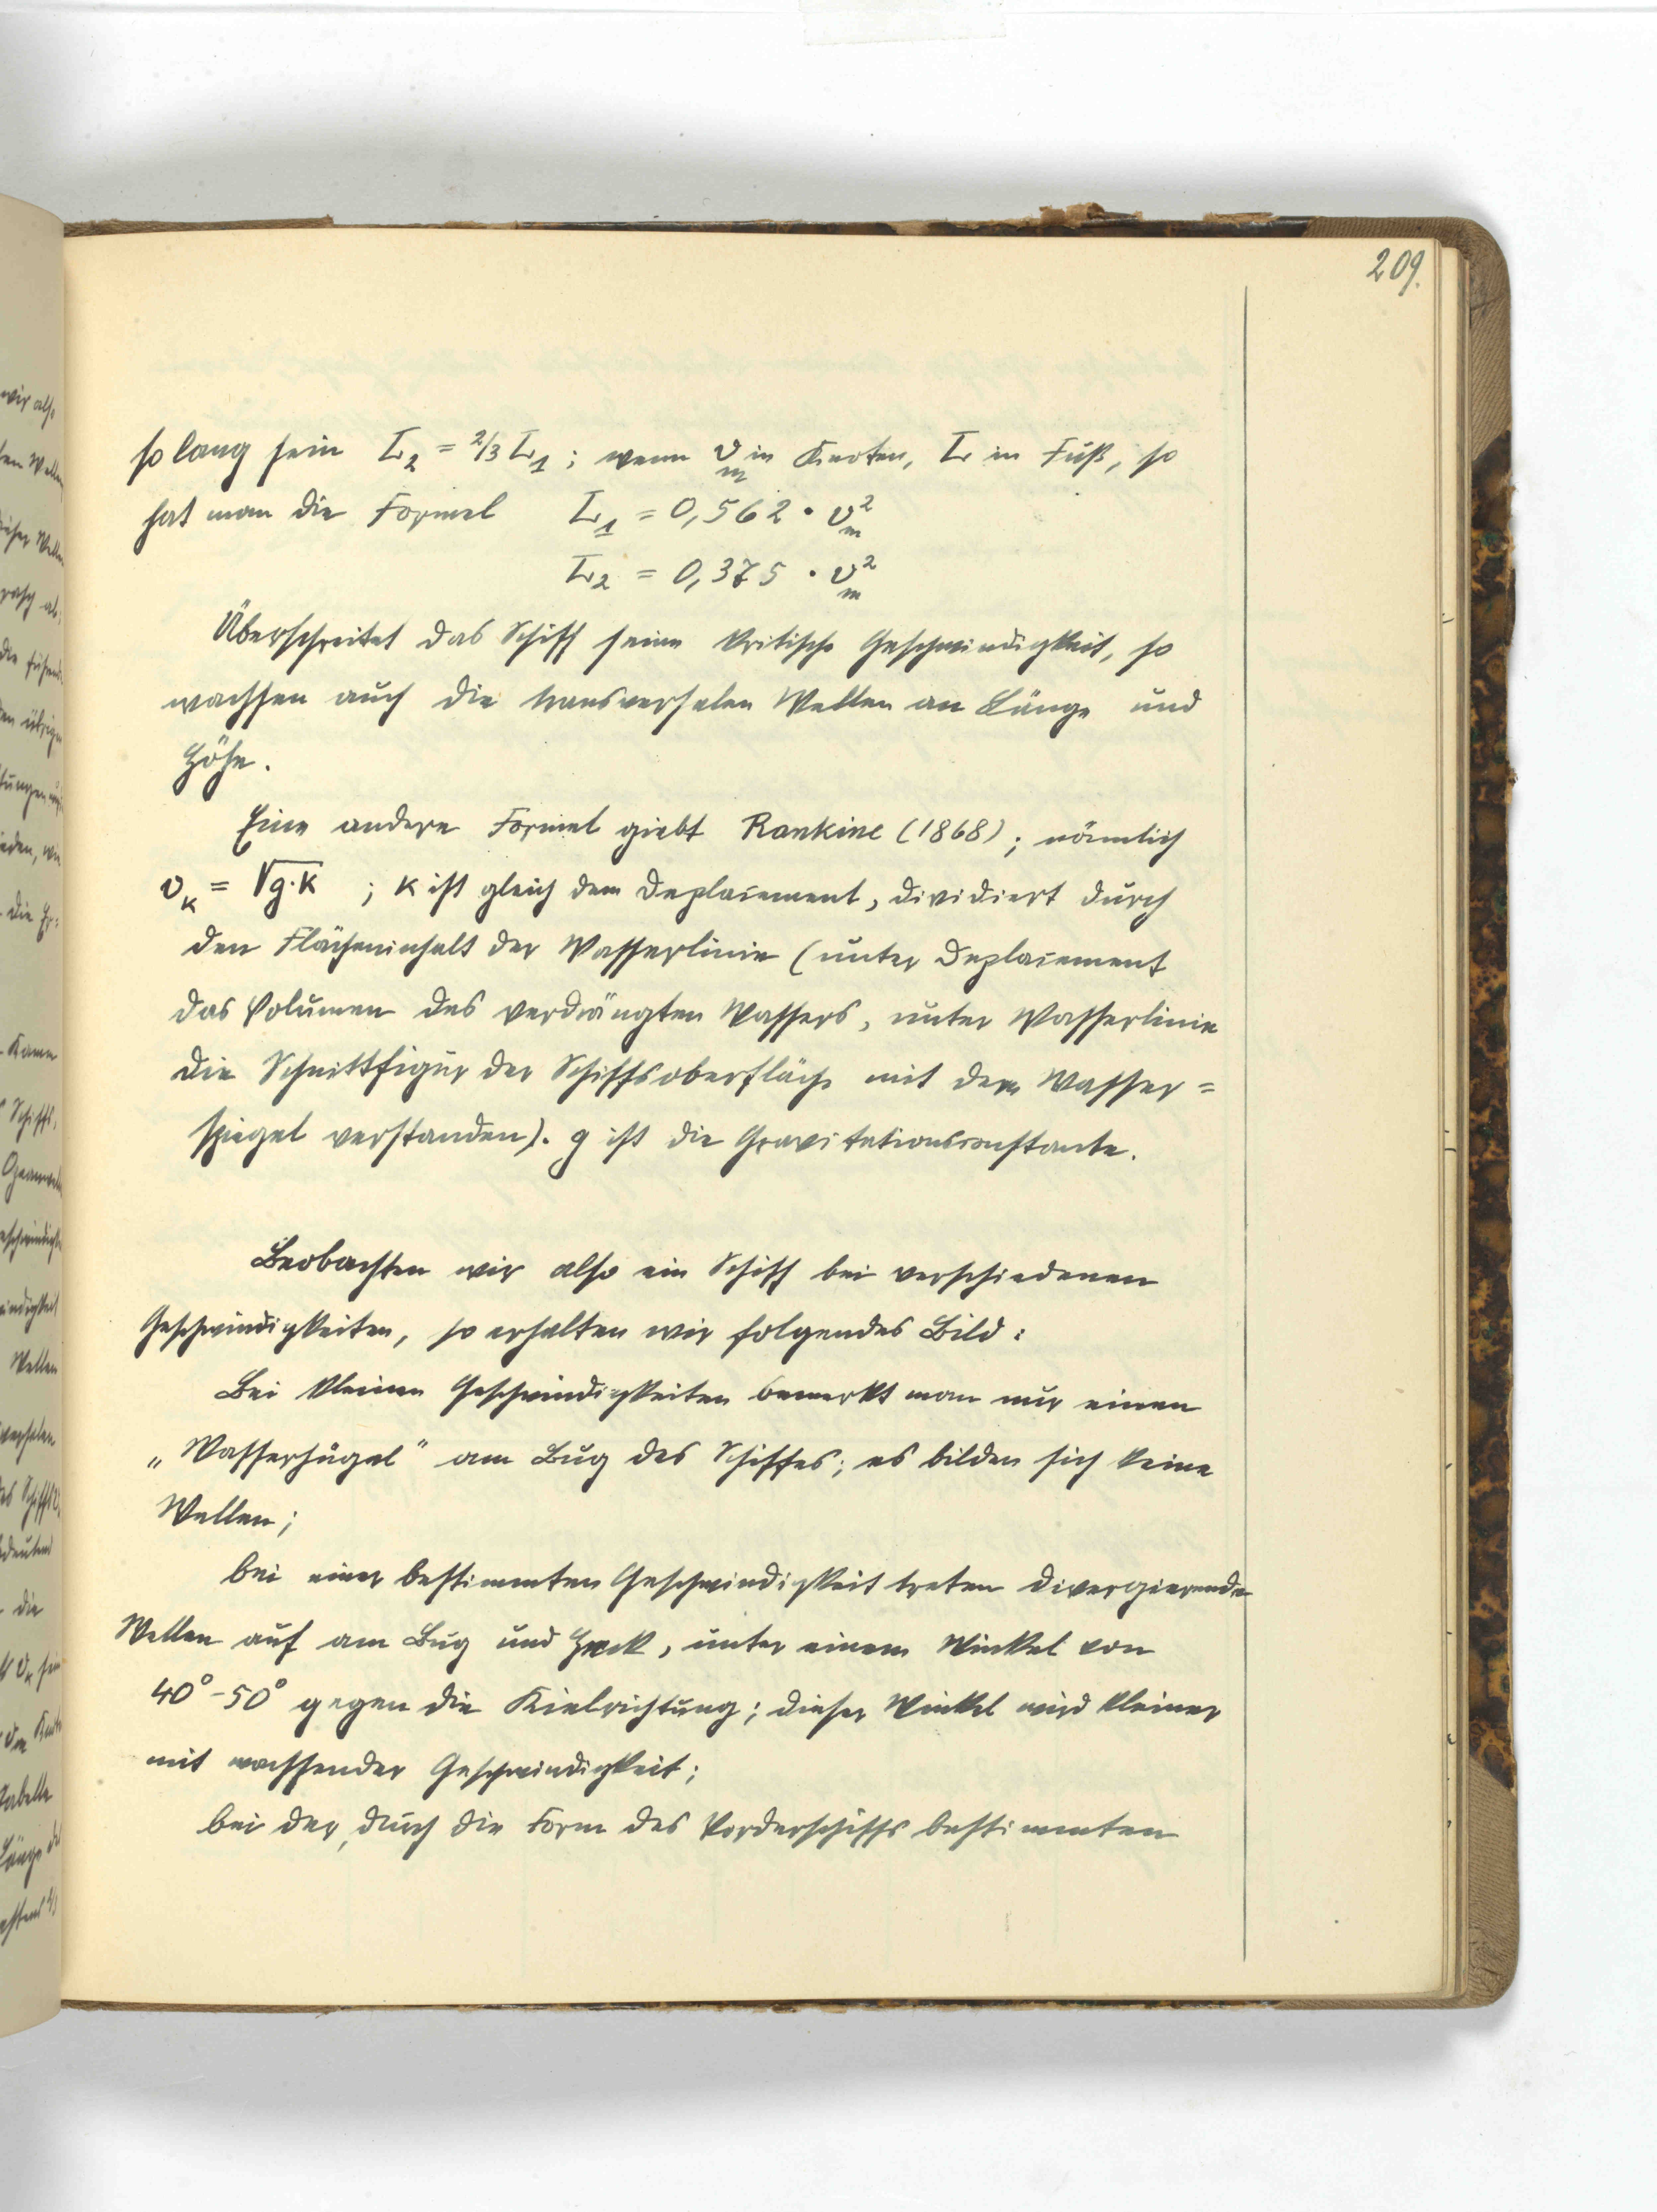 209.
so lang sein L₂ = 2/3 L₁ ; wenn v_m in Knoten, L in Fuß, so
hat man die Formel L₁ = 0,562 · v_m²
L₂ = 0,375 · v_m²
Überschreitet das Schiff seine kritische Geschwindigkeit, so
wachsen auch die transversalen Wellen an Länge und
Höhe.
Eine andere Formel giebt Rankine (1868) ; nämlich
v_K = √g·K ; K ist gleich dem Deplacement, dividiert durch
den Flächeninhalt der Wasserlinie (unter Deplacement
das Volumen des verdrängten Wassers, unter Wasserlinie
die Schnittfigur der Schiffsoberfläche mit dem Wasser=
spiegel verstanden). g ist die Gravitationsconstante.
Beobachten wir also ein Schiff bei verschiedenen
Geschwindigkeiten, so erhalten wir folgendes Bild:
Bei kleinen Geschwindigkeiten bemerkt man nur einen
„Wasserhügel" am Bug des Schiffes; es bilden sich keine
Wellen;
bei einer bestimmten Geschwindigkeit treten divergierende
Wellen auf am Bug und Heck, unter einem Winkel von
40°-50° gegen die Kielrichtung; dieser Winkel wird kleiner
mit wachsender Geschwindigkeit;
bei der, durch die Form des Vorderschiffs bestimmten